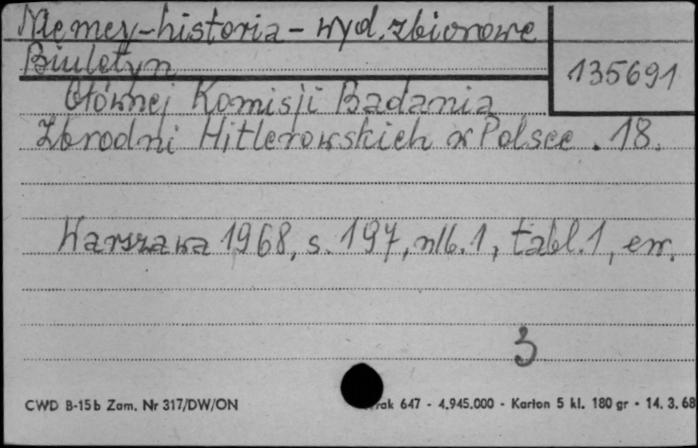 Niemcy-historia - wyd. zbiorowe
Biuletyn
135691
Głównej Komisji Badania
Zbrodni Hitlerowskich w Polsce . 18.
Warszawa 1968, s. 197, nlb. 1, tabl. 1, err.
3
CWD B-15b Zam. Nr 317/DW/ON
rak 647 - 4.945.000 - Karton 5 kl. 180 gr - 14. 3. 68